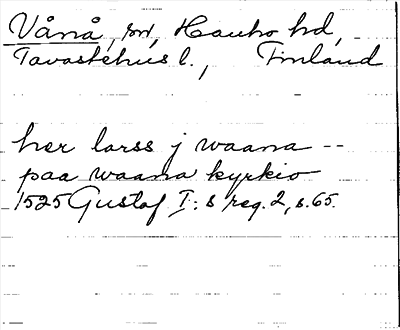 Vånå, sn, Hauho hd,
Tavastehus l., Finland
her larss j waana --
paa waana kyrkio
1525 Gustaf I:s reg. 2, s. 65.